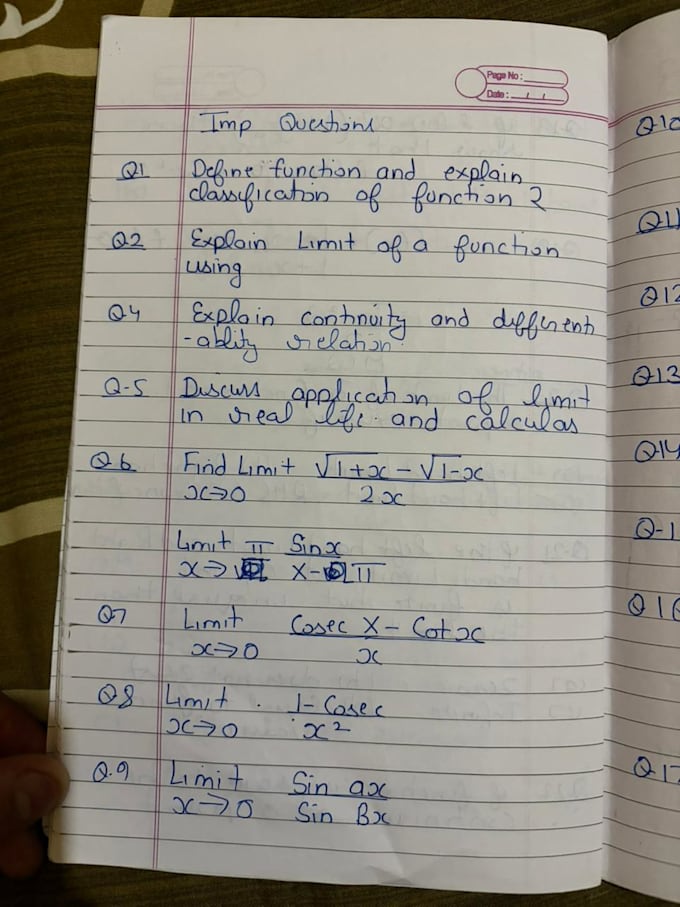 Page No:
Date: / /
Imp Questions
Q1 Define function and explain
classification of function ?
Q2 Explain Limit of a function
using
Q4 Explain contnuity and different
-ablity relation.
Q-5 Discuss application of limit
in real life and calculas
Q.6 Find Limit √1+x - √1-x
x→0 2x
Limit π Sinx
x→ x- π
Q7 Limit Cosec x - Cotx
x→0 x
Q8 Limit . 1- Cosec
x→0 x²
Q.9 Limit Sin ax
x→0 Sin Bx
Q10
Q11
Q12
Q13
Q14
Q17